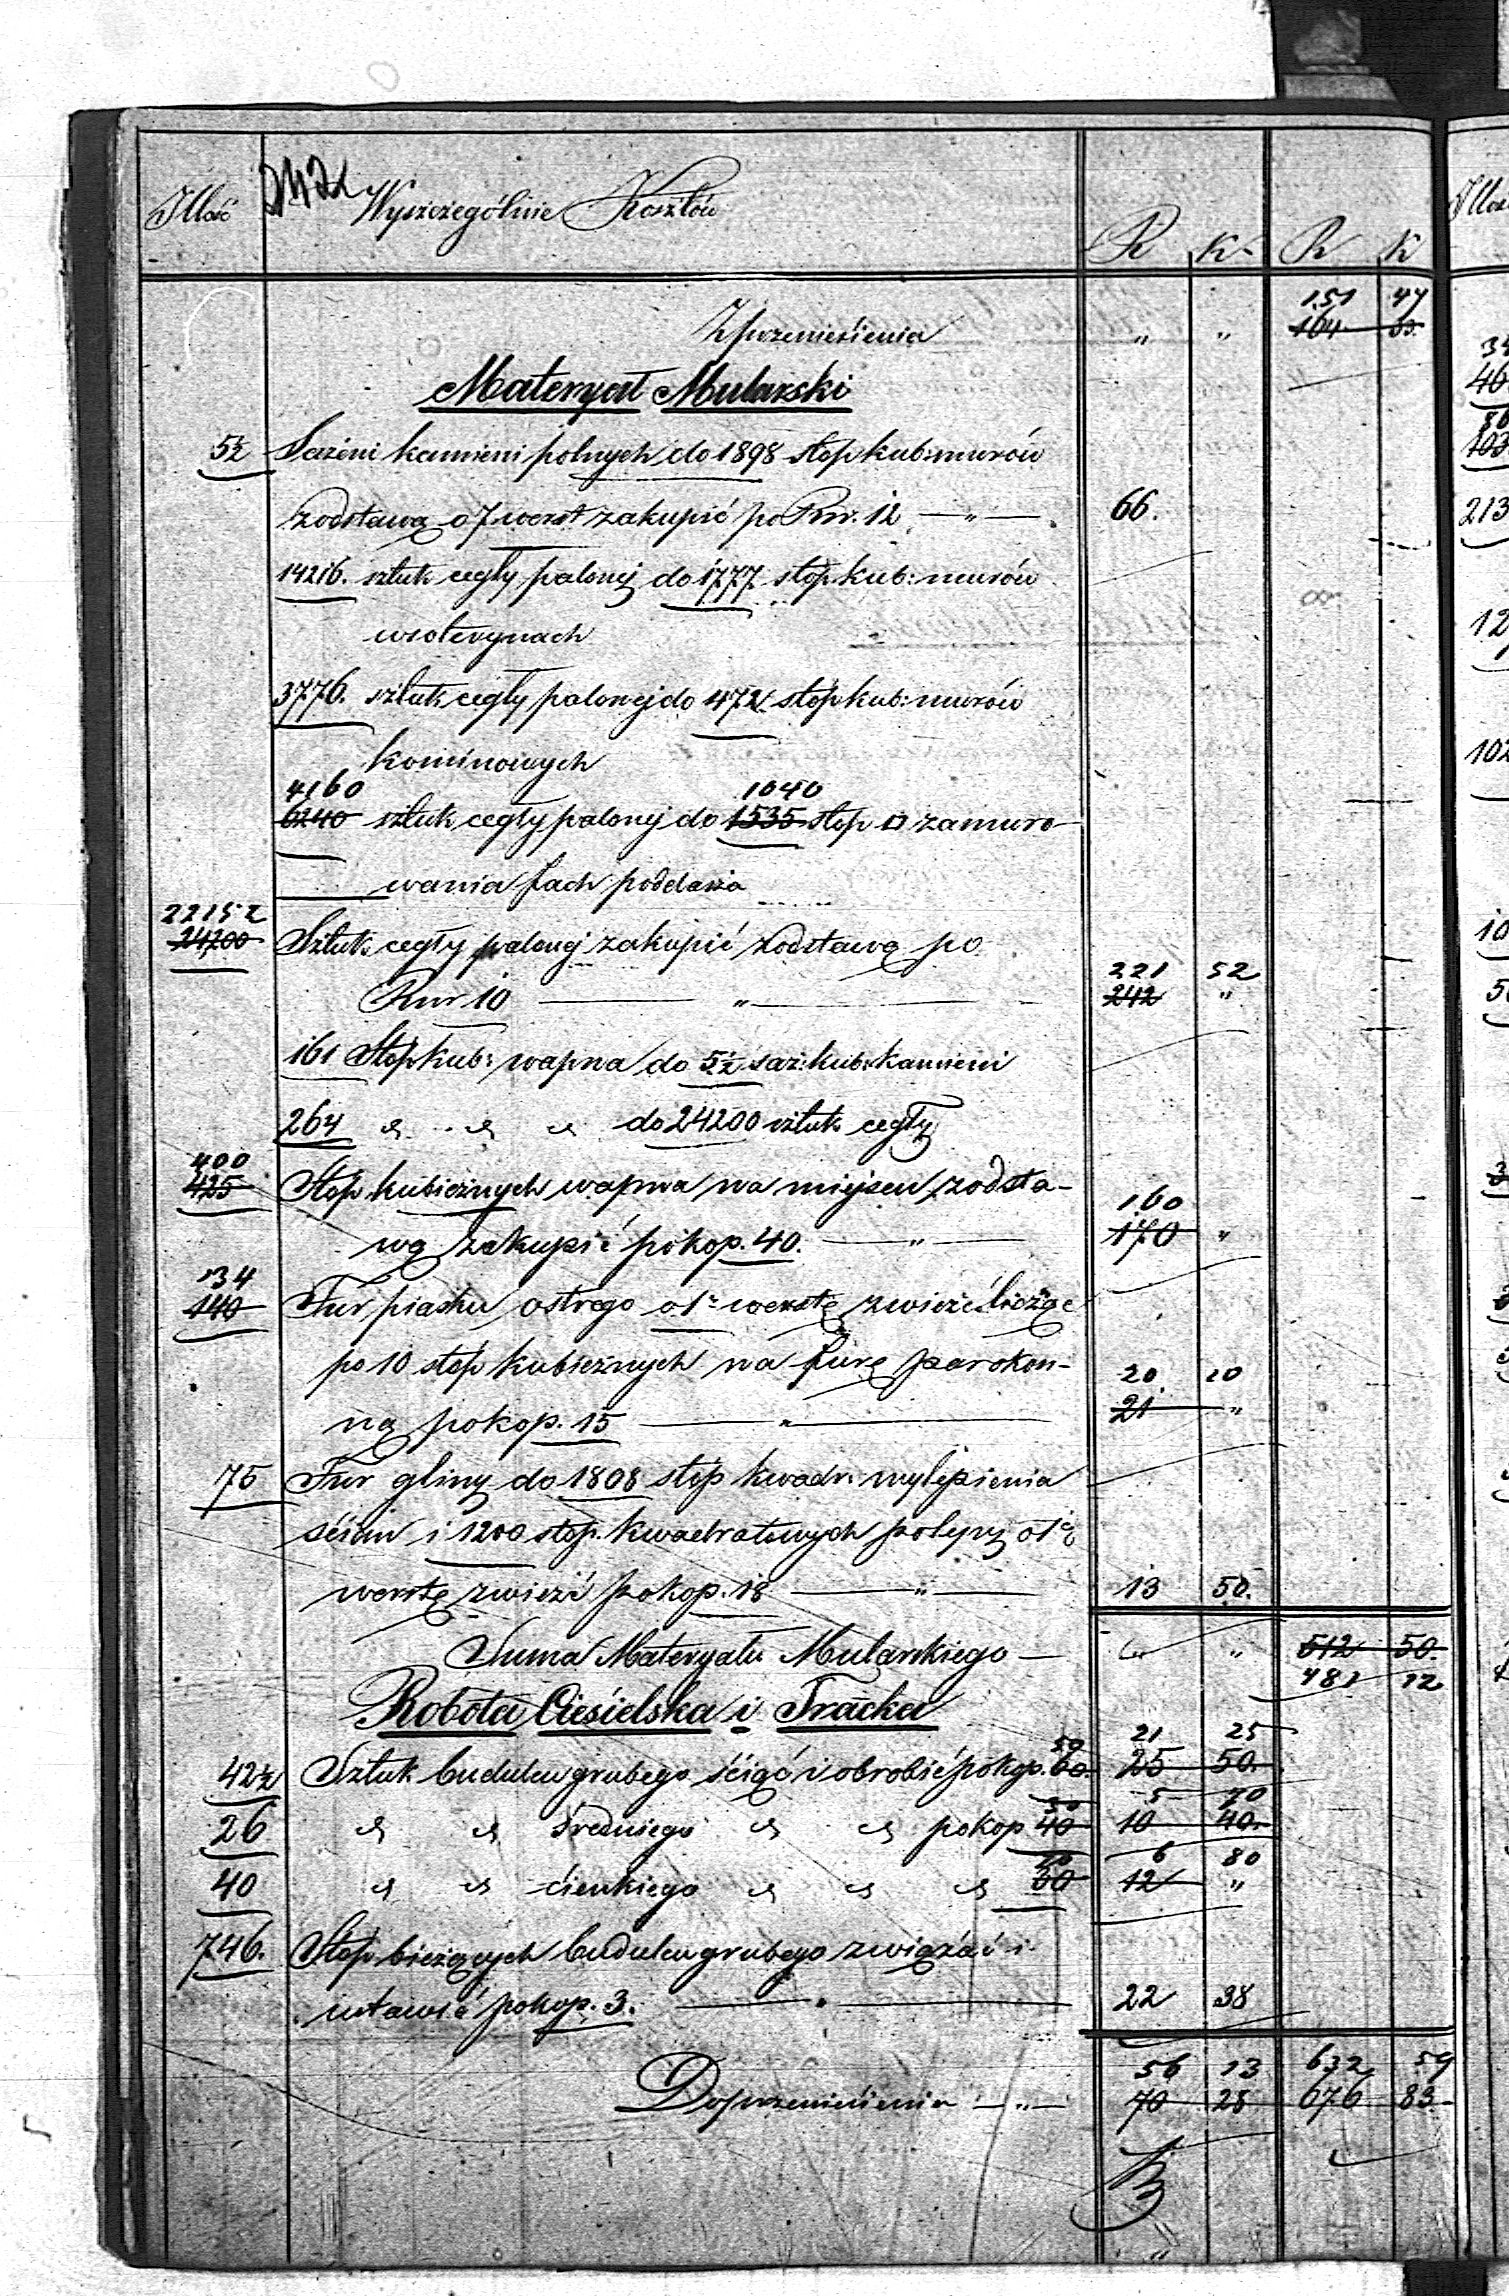 Illość Wyszczególnie Kosztów R K R K
151 47
Z przeniesienia " " 164
Materyał Mularski
5½ Sążeni kamieni polnych do 1898 stóp kub: murów
z odstawą o 7 werst zakupić po Rsr. 12 — " — 66.
14216. sztuk cegły palonej do 1777 stóp kub: murów
w soterynach
3776. sztuk cegły palonej do 472 stóp kub: murów
kominowych
4160 1040
6240 sztuk cegły palonej do 1535 stóp □ zamuro-
wania fach poddasza
22152
24200 Sztuk cegły palonej zakupić z odstawą po
221 52
Rsr 10 — " — 242 "
161 Stóp kub: wapna do 5½ saż: kub: kamieni
264 " " " do 24200 sztuk cegły
400
425 Stóp kubicznych wapna na miejscu z odsta-
160
wą zakupić po kop. 40. — " — 170 "
134
140 Fur piasku ostrego o 1ę werstę zwieźć licząc
po 10 stóp kubicznych na furę parokon-
20 10
ną po kop. 15 — " — 21 "
75 Fur gliny do 1808 stóp kwadr: wylepienia
ścian i 1200 stóp. kwadratowych polepy o 1ę
werstę zwieźć po kop. 18 — " — 13 50.
Suma Materyału Mularskiego — " " 512 50.
481 12
Robota Ciesielska i Tracka
50 21 25
42½ Sztuk budulcu grubego ściąć i obrobić po kop. 60. 25 50.
5 20
26 " " średniego " " po kop 40 10 40.
20 6 80
40 " " cienkiego " " " 30 12 "
746. Stóp bieżących budulcu grubego związać i
ustawić po kop. 3. — " — 22 38
56 13 632 59
Do przeniesienia — " — 70 28 676 83